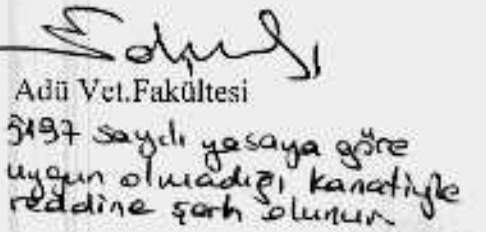 Adü Vet.Fakültesi
5197 sayılı yasaya göre
uygun olmadığı kanatiyle
reddine şerh olunur